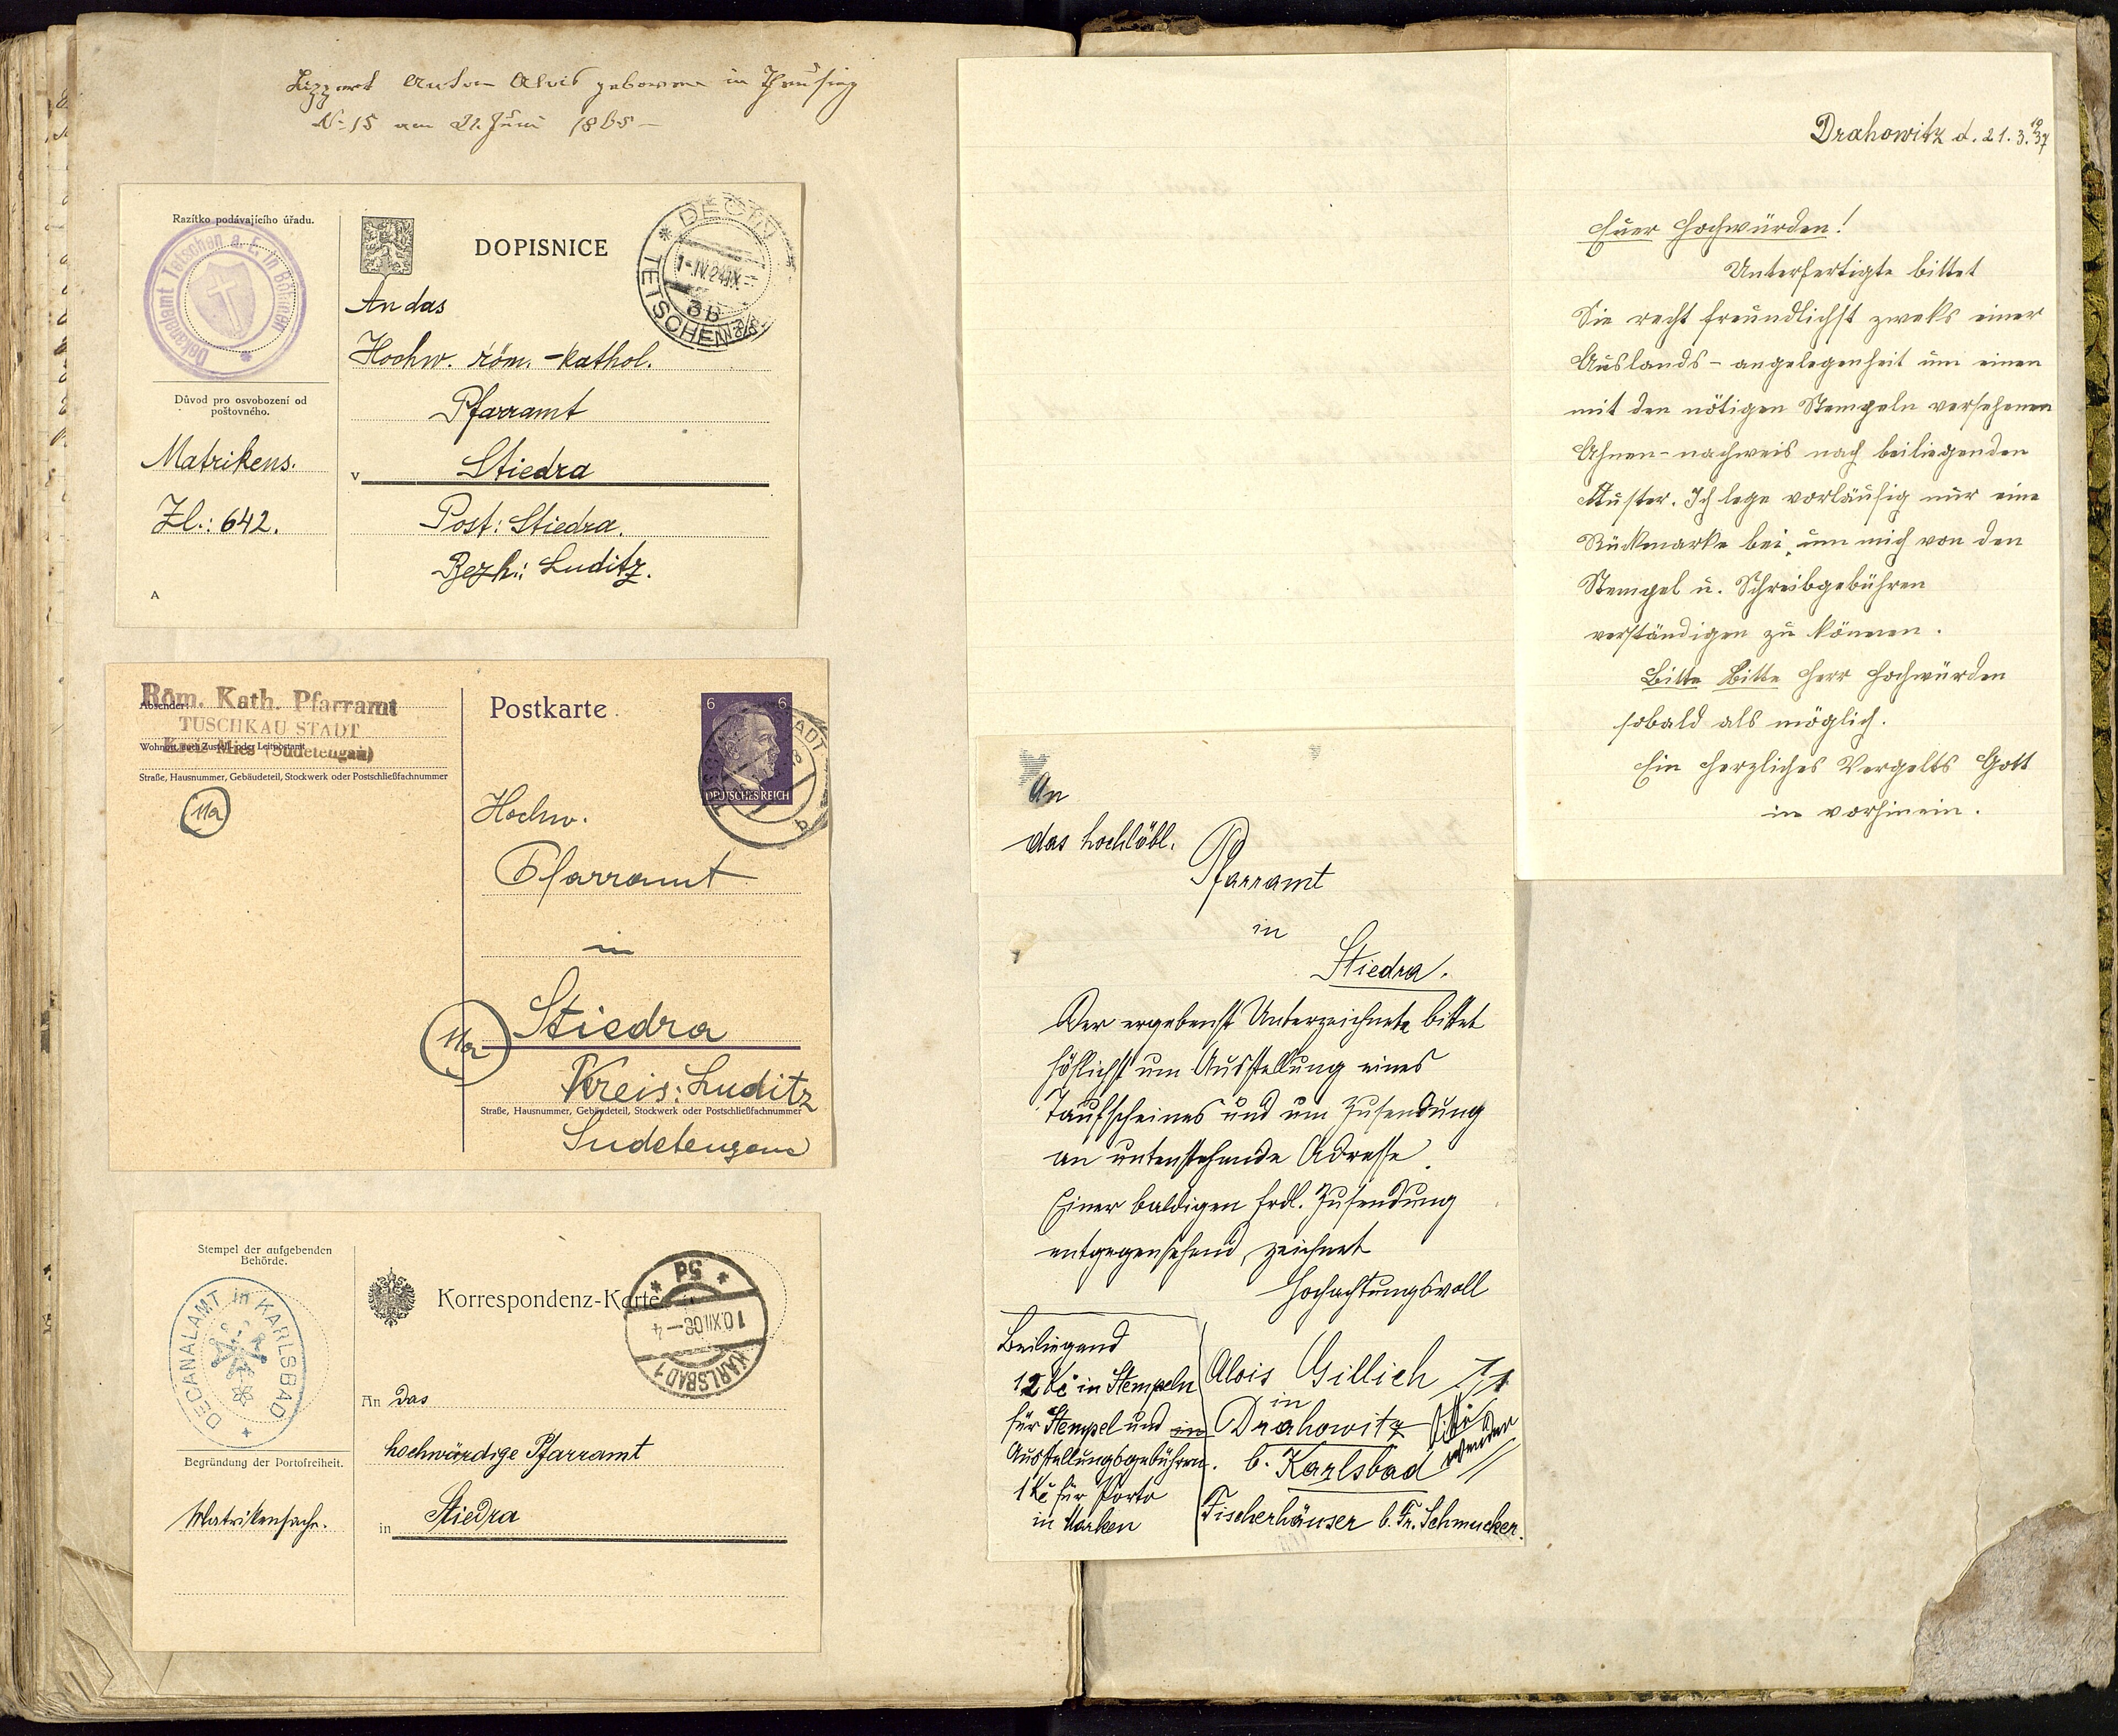 Lippert Anton Alois geboren in Theusing
No 15 am 21. Juni 1865 –
Razítko podávajícího úřadu.
Dekanalamt Tetschen a. E. in Böhmen
Důvod pro osvobození od
poštovného.
Matrikens.
Zl.: 642.
A
DOPISNICE
DĚČÍN
3b
TETSCHEN
An das
Hochw. röm.-kathol.
Pfarramt
v Stiedra
Post: Stiedra.
Bezk.: Luditz.
Röm. Kath. Pfarramt
Absender:
TUSCHKAU STADT
Wohnort, auch Zustell- oder Leitpostamt
Kreis Mies (Sudetengau)
Straße, Hausnummer, Gebäudeteil, Stockwerk oder Postschließfachnummer
11a
Postkarte
6 6
DEUTSCHES REICH
Hochw.
Pfarramt
in
11a
Stiedra
Kreis: Luditz
Straße, Hausnummer, Gebäudeteil, Stockwerk oder Postschließfachnummer
Sudetengau
Stempel der aufgebenden
Behörde.
DECANALAMT in KARLSBAD
Begründung der Portofreiheit.
Matrikensache.
Korrespondenz-Karte
5d
10.XII.08-4
KARLSBAD 1
An das
hochwürdige Pfarramt
in Stiedra
An
das hochlöbl.
Pfarramt
in
Stiedra.
Der ergebenst Unterzeichnete bittet
höflichst um Ausstellung eines
Taufscheines und um Zusendung
an untenstehende Adresse.
Einer baldigen frdl. Zusendung
entgegensehend, zeichnet
Hochachtungsvoll
Beiliegend
12 Kč in Stempeln
für Stempel und in
Ausstellungsgebühren.
1 Kč für Porto
in Marken
Alois Gillich
in
Drahowitz
b. Karlsbad
Fischerhäuser b. Fr. Schmucker.
bitte
wenden
Drahowitz d. 21.3.1937
Euer Hochwürden!
Unterfertigte bittet
Sie recht freundlichst zweks einer
Auslands-angelegenheit um einen
mit den nötigen Stempeln versehenen
Ahnen-nachweis nach beiliegenden
Muster. Ich lege vorläufig nur eine
Rückmarke bei, um mich von den
Stempel u. Schreibgebühren
verständigen zu können.
Bitte Bitte Herr Hochwürden
sobald als möglich.
Ein herzliches Vergelts Gott
in vorhinein.